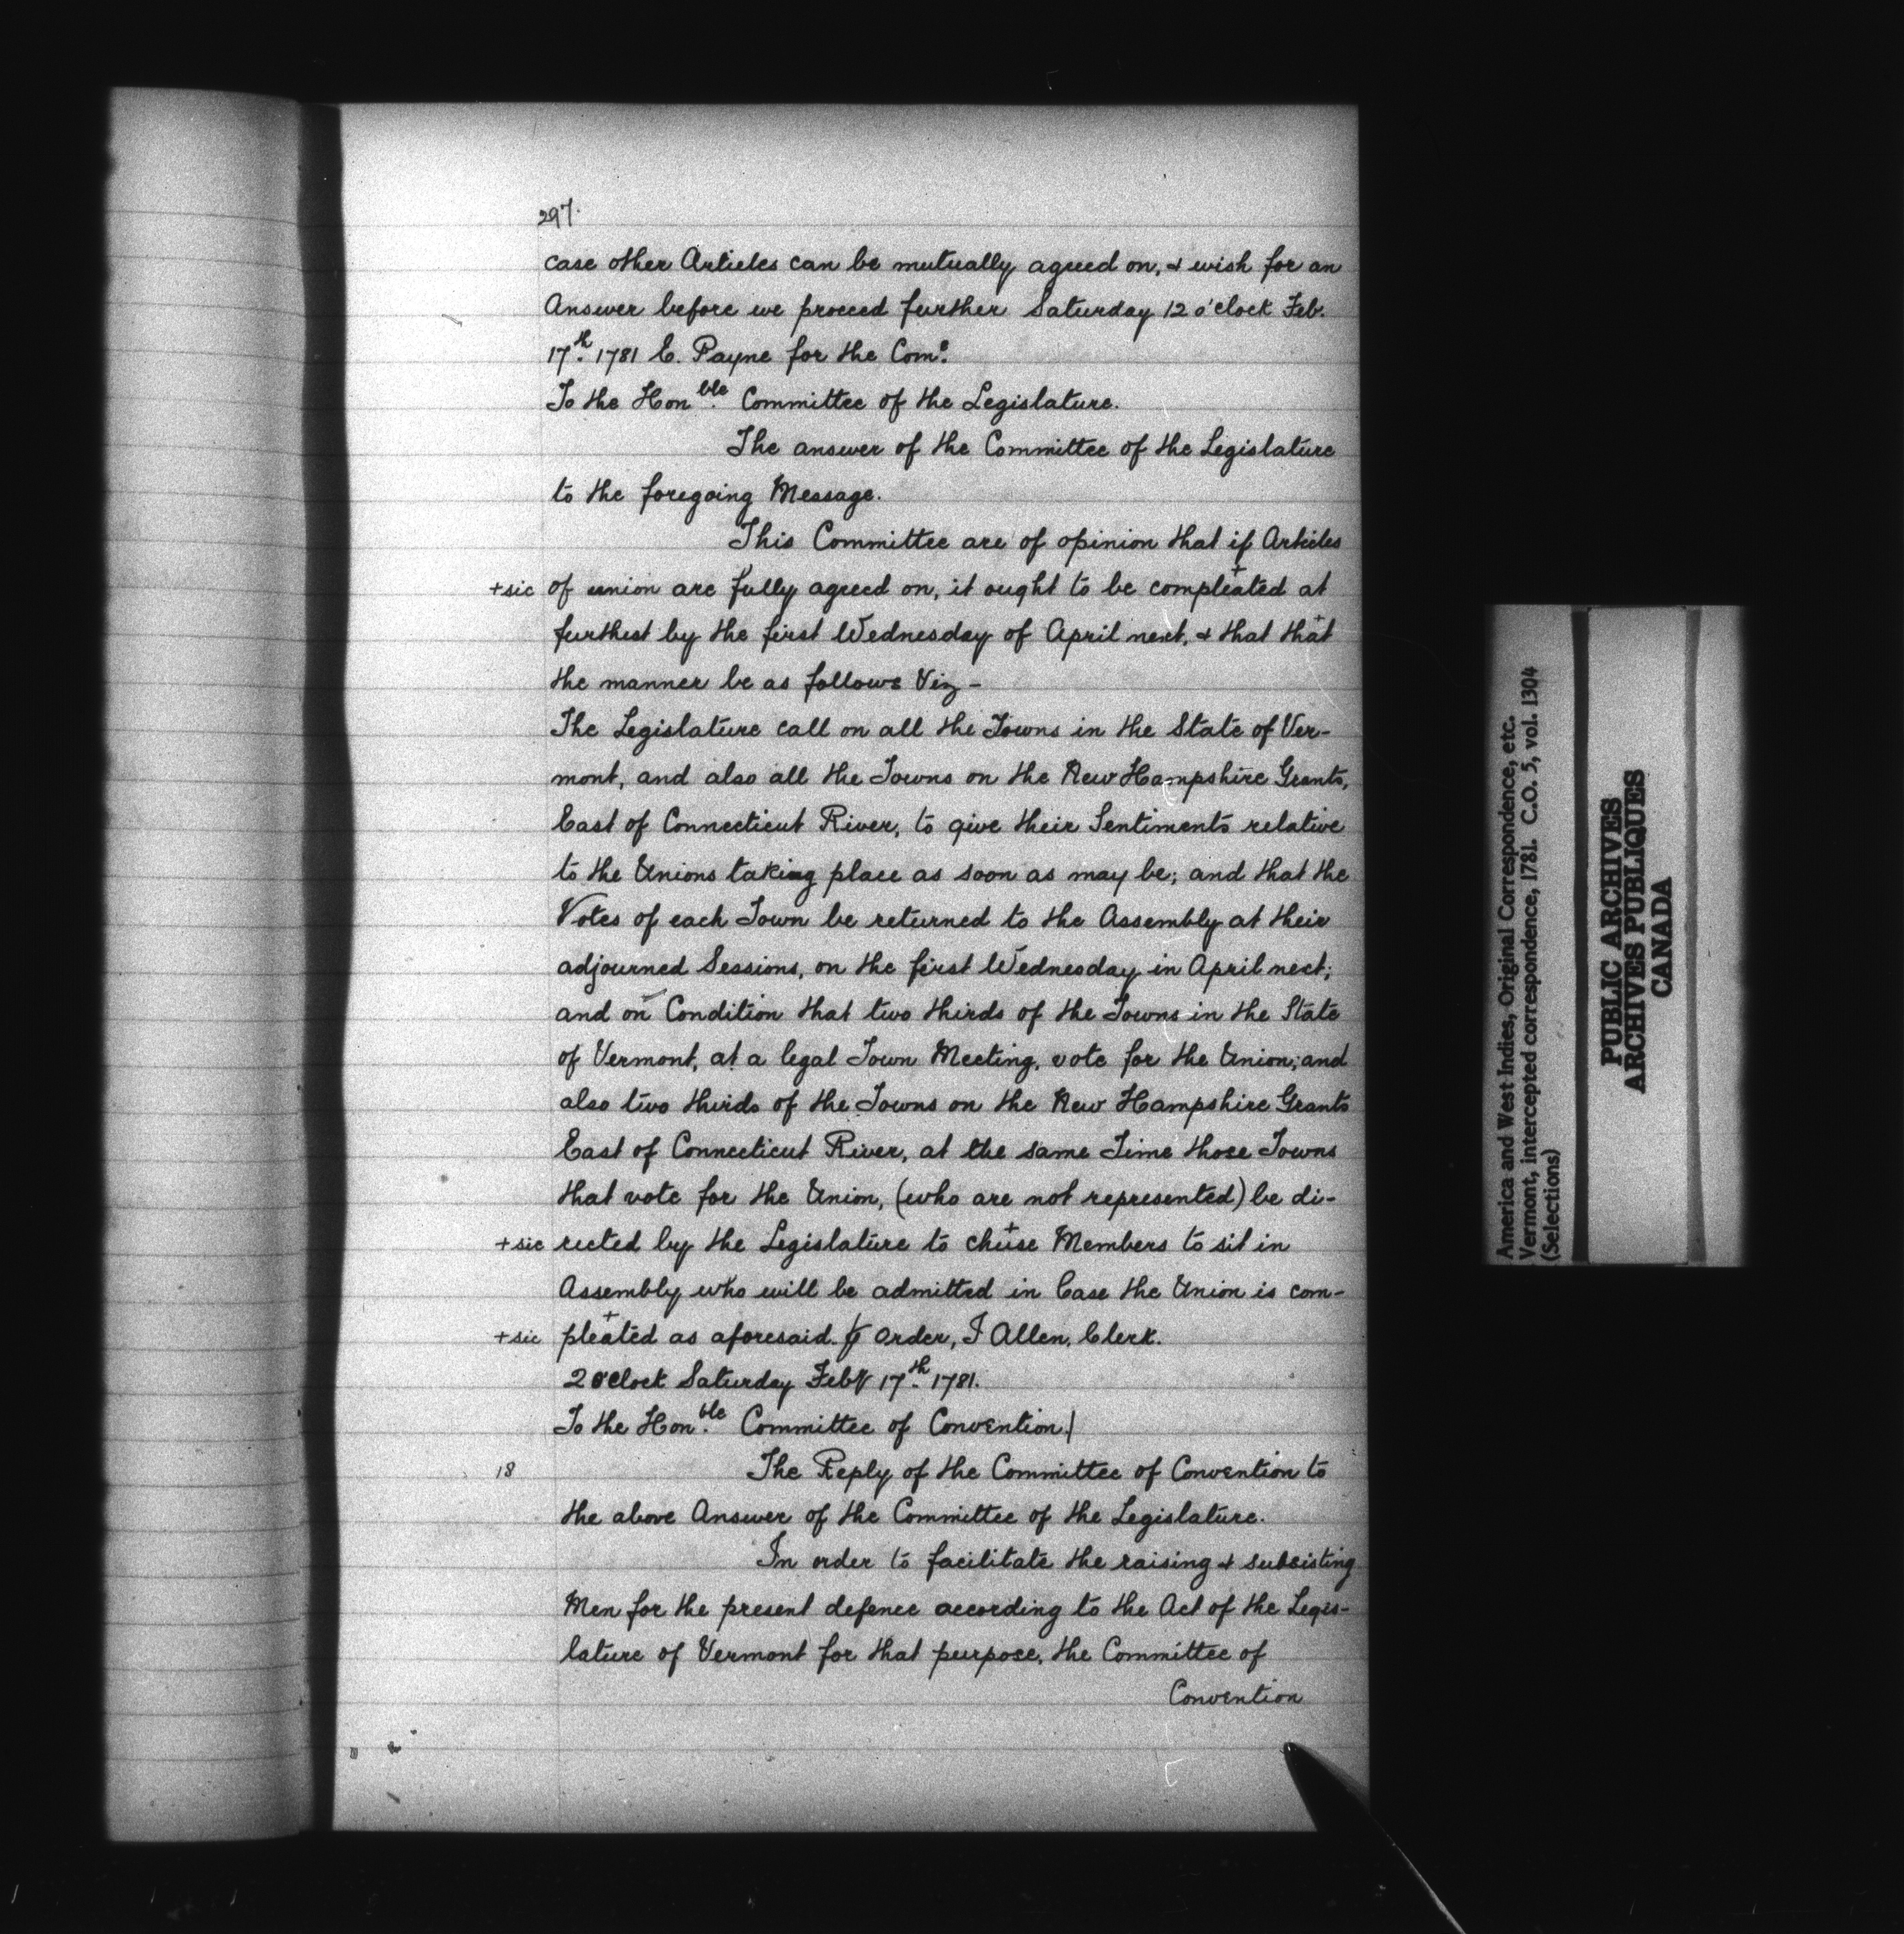 297.
case other Articles can be mutually agreed on, & wish for an
Answer before we proceed further Saturday 12 o'clock Feb.
17th. 1781 E. Payne for the Come.
To the Honble. Committee of the Legislature.
The answer of the Committee of the Legislature
to the foregoing Message.
This Committee are of opinion that if Articles
+sic of union are fully agreed on, it ought to be compleated+ at
furthest by the first Wednesday of April next, & that that+
the manner be as follows Viz -
The Legislature call on all the Towns in the State of Ver-
mont, and also all the Towns on the New Hampshire Grants,
East of Connecticut River, to give their Sentiments relative
to the Unions taking place as soon as may be; and that the
Votes of each Town be returned to the Assembly at their
adjourned Sessions, on the first Wednesday in April next;
and on Condition that two thirds of the Towns in the State
of Vermont, at a legal Town Meeting, vote for the Union; and
also two thirds of the Towns on the New Hampshire Grants
East of Connecticut River, at the same Time those Towns
that vote for the Union, (who are not represented) be di-
+sic rected by the Legislature to chuse+ Members to sit in
Assembly who will be admitted in Case the Union is com-
+sic pleated+ as aforesaid. ⅌ order, I Allen, Clerk.
2 o'Clock Saturday Feby 17th. 1781.
To the Honble. Committee of Convention.)
18 The Reply of the Committee of Convention to
the above Answer of the Committee of the Legislature.
In order to facilitate the raising & subsisting
Men for the present defence according to the Act of the Legis-
lature of Vermont for that purpose, the Committee of
Convention
America and West Indies, Original Correspondence, etc.
Vermont, intercepted correspondence, 1781. C.O. 5, vol. 1304
(Selections)
PUBLIC ARCHIVES
ARCHIVES PUBLIQUES
CANADA